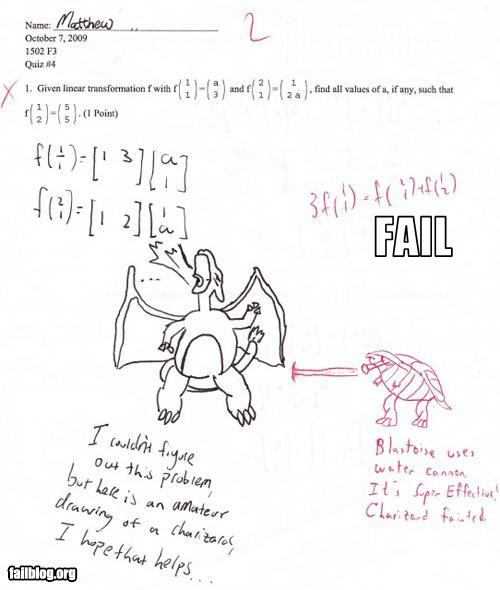 Name: Matthew
2
October 7, 2009
1502 F3
Quiz #4
X 1. Given linear transformation f with f(1 1)=(a 3) and f(2 1)=(1 2a), find all values of a, if any, such that
f(1 2)=(5 5). (1 Point)
f(1 1)=[1 3][a 1]
f(2 1)=[1 2][1 a]
3f(1 1)=f(2 1)+f(1 2)
FAIL
...
I couldn't figure
out this problem,
but here is an amateur
drawing of a charizard,
I hope that helps...
Blastoise uses
water cannon
It's Super Effective!
Charizard fainted.
failblog.org